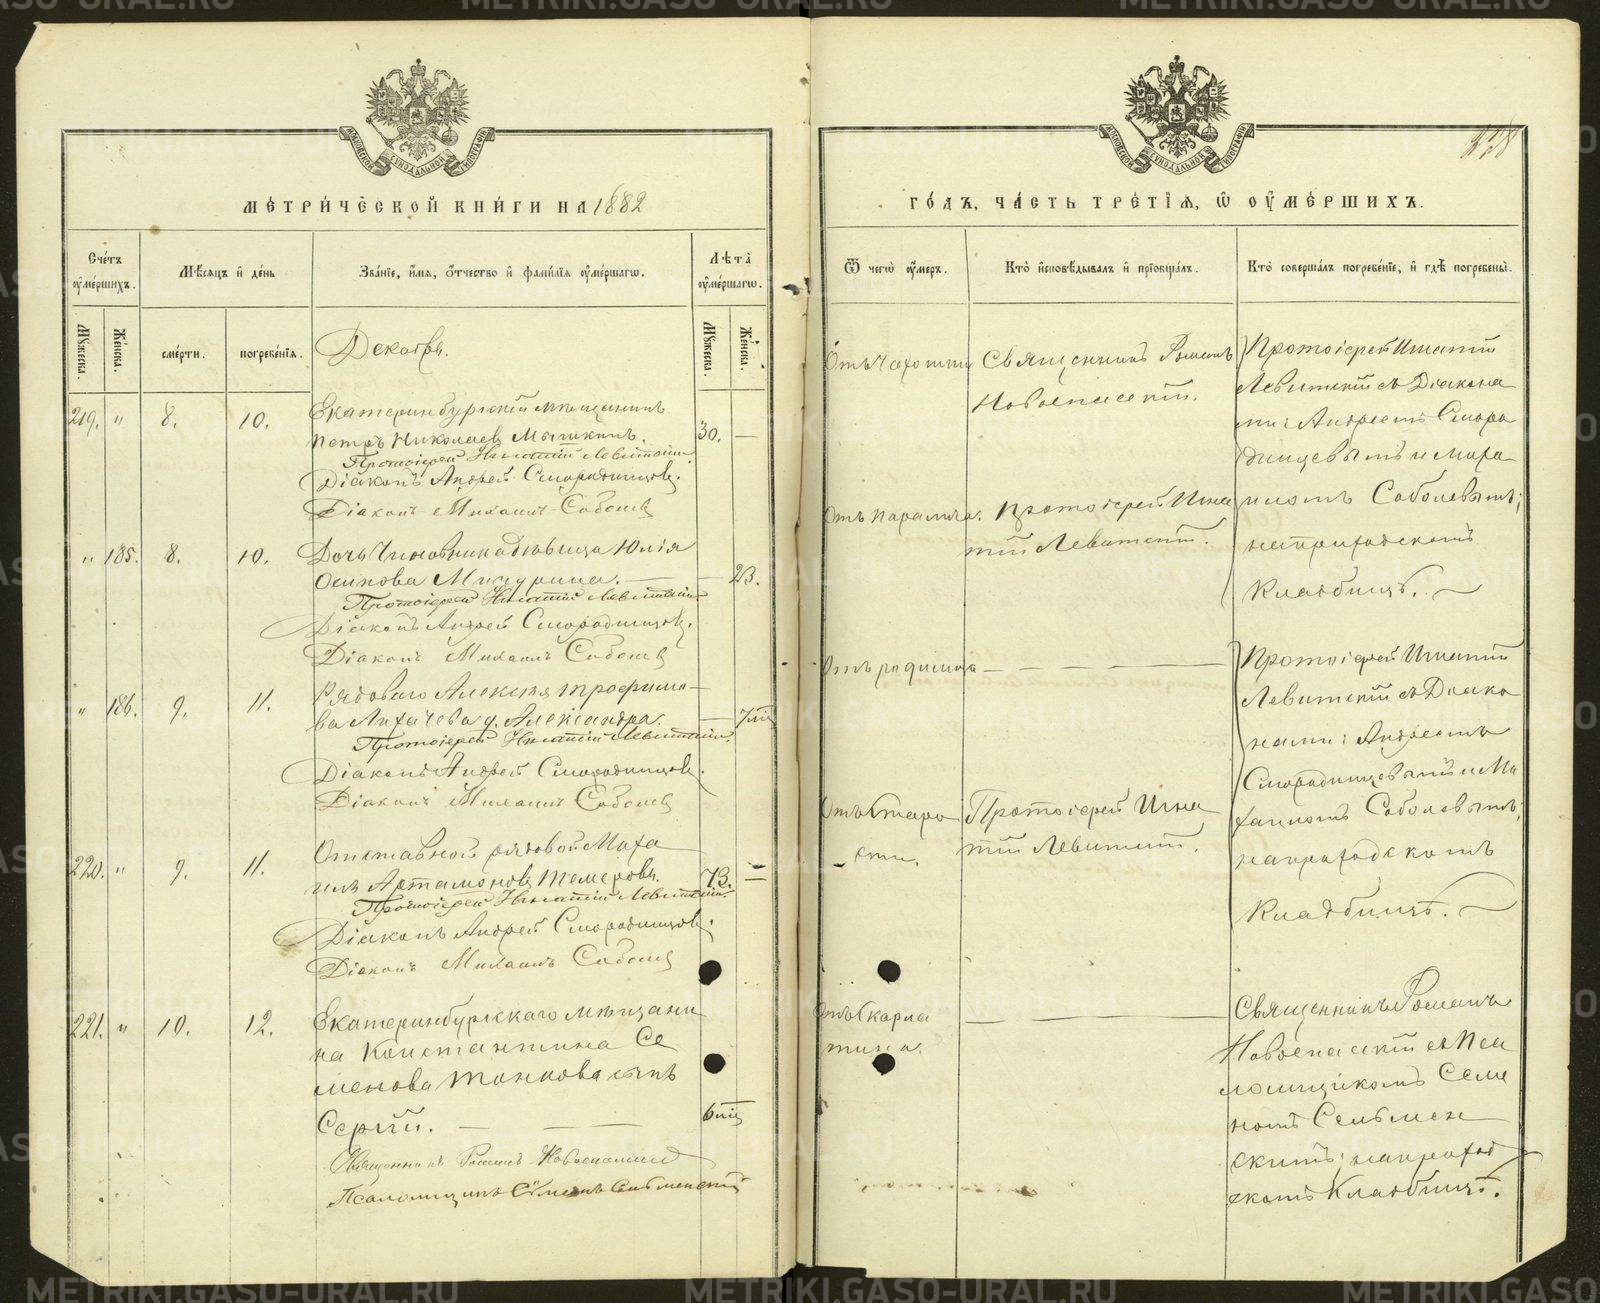 METRIKI.GASO-URAL.RU
МОСКОВСКОЙ СѴНОДАЛЬНОЙ ТИПОГРАФІИ
МЕТРИ́ЧЕСКОЙ КНИ́ГИ НА 1882
Сче́тъ ᲂу҆ме́ршихъ.
Мѣ́сяцъ и҆ де́нь
Зва́нїе, и҆́мя, ѻ҆́тчество и҆ фами́лїя ᲂу҆ме́ршагѡ.
Лѣ́та ᲂу҆ме́ршагѡ.
Мꙋ́жеска.
Же́нска.
сме́рти.
погребе́нїя.
Мꙋ́жеска.
Же́нска.
Декабрь.
219. " 8. 10. Екатеринбургскій мѣщанинъ
Петръ Николаевъ Мышкинъ. 30. —
Протоіерей Игнатій Левитскій.
Діаконъ Андрей Смородинцовъ.
Діаконъ Михаилъ Соболевъ
" 185. 8. 10. Дочь чиновника дѣвица Юлія
Осипова Мичурина. — — 23.
Протоіерей Игнатій Левитскій.
Діаконъ Андрей Смородинцовъ.
Діаконъ Михаилъ Соболевъ
" 186. 9. 11. Рядоваго Алексѣя Трофимо-
ва Лихачева д. Александра. — 7 мц
Протоіерей Игнатій Левитскій.
Діаконъ Андрей Смородинцовъ.
Діаконъ Михаилъ Соболевъ
220. " 9. 11. Отставной рядовой Миха
илъ Артамоновъ Темеровъ. 73. —
Протоіерей Игнатій Левитскій.
Діаконъ Андрей Смородинцовъ.
Діаконъ Михаилъ Соболевъ
221. " 10. 12. Екатеринбургскаго мѣщани
на Константина Се
менова Тонкова сынъ
Сергій. — — — 6 мц
Священникъ Романъ Новоспасскій
Псаломщикъ Сѵмеонъ Сельменскій
ГО́ДЪ, ЧА́СТЬ ТРЕ́ТЇЯ, Ѡ҆ ОУ҆МЕ́РШИХЪ.
Ѿ чегѡ̀ ᲂу҆́меръ.
Кто̀ и҆сповѣ́дывалъ и҆ прїѡбща́лъ.
Кто̀ соверша́лъ погребе́нїе, и҆ гдѣ̀ погребены̀.
Отъ Чахотки
Священникъ Романъ
Новоспасскій.
Протоіерей Игнатій
Левитскій съ Діакона
ми: Андреемъ Сморо
динцевымъ и Миха
иломъ Соболевымъ;
на приходскомъ
Кладбищѣ.
Отъ паралича.
Протоіерей Игна
тій Левитскій.
Отъ родимца — — — —
Протоіерей Игнатій
Левитскій съ Діако
нами: Андреемъ
Смородинцевымъ и Ми
хаиломъ Соболевымъ;
на приходскомъ
Кладбищѣ.
Отъ старо
сти.
Протоіерей Игна
тій Левитскій.
Отъ Скарла
тина.
— — —
Священникъ Романъ
Новоспасскій съ Пса
ломщикомъ Семе
номъ Сельмен
скимъ; на приход
скомъ Кладбищѣ.